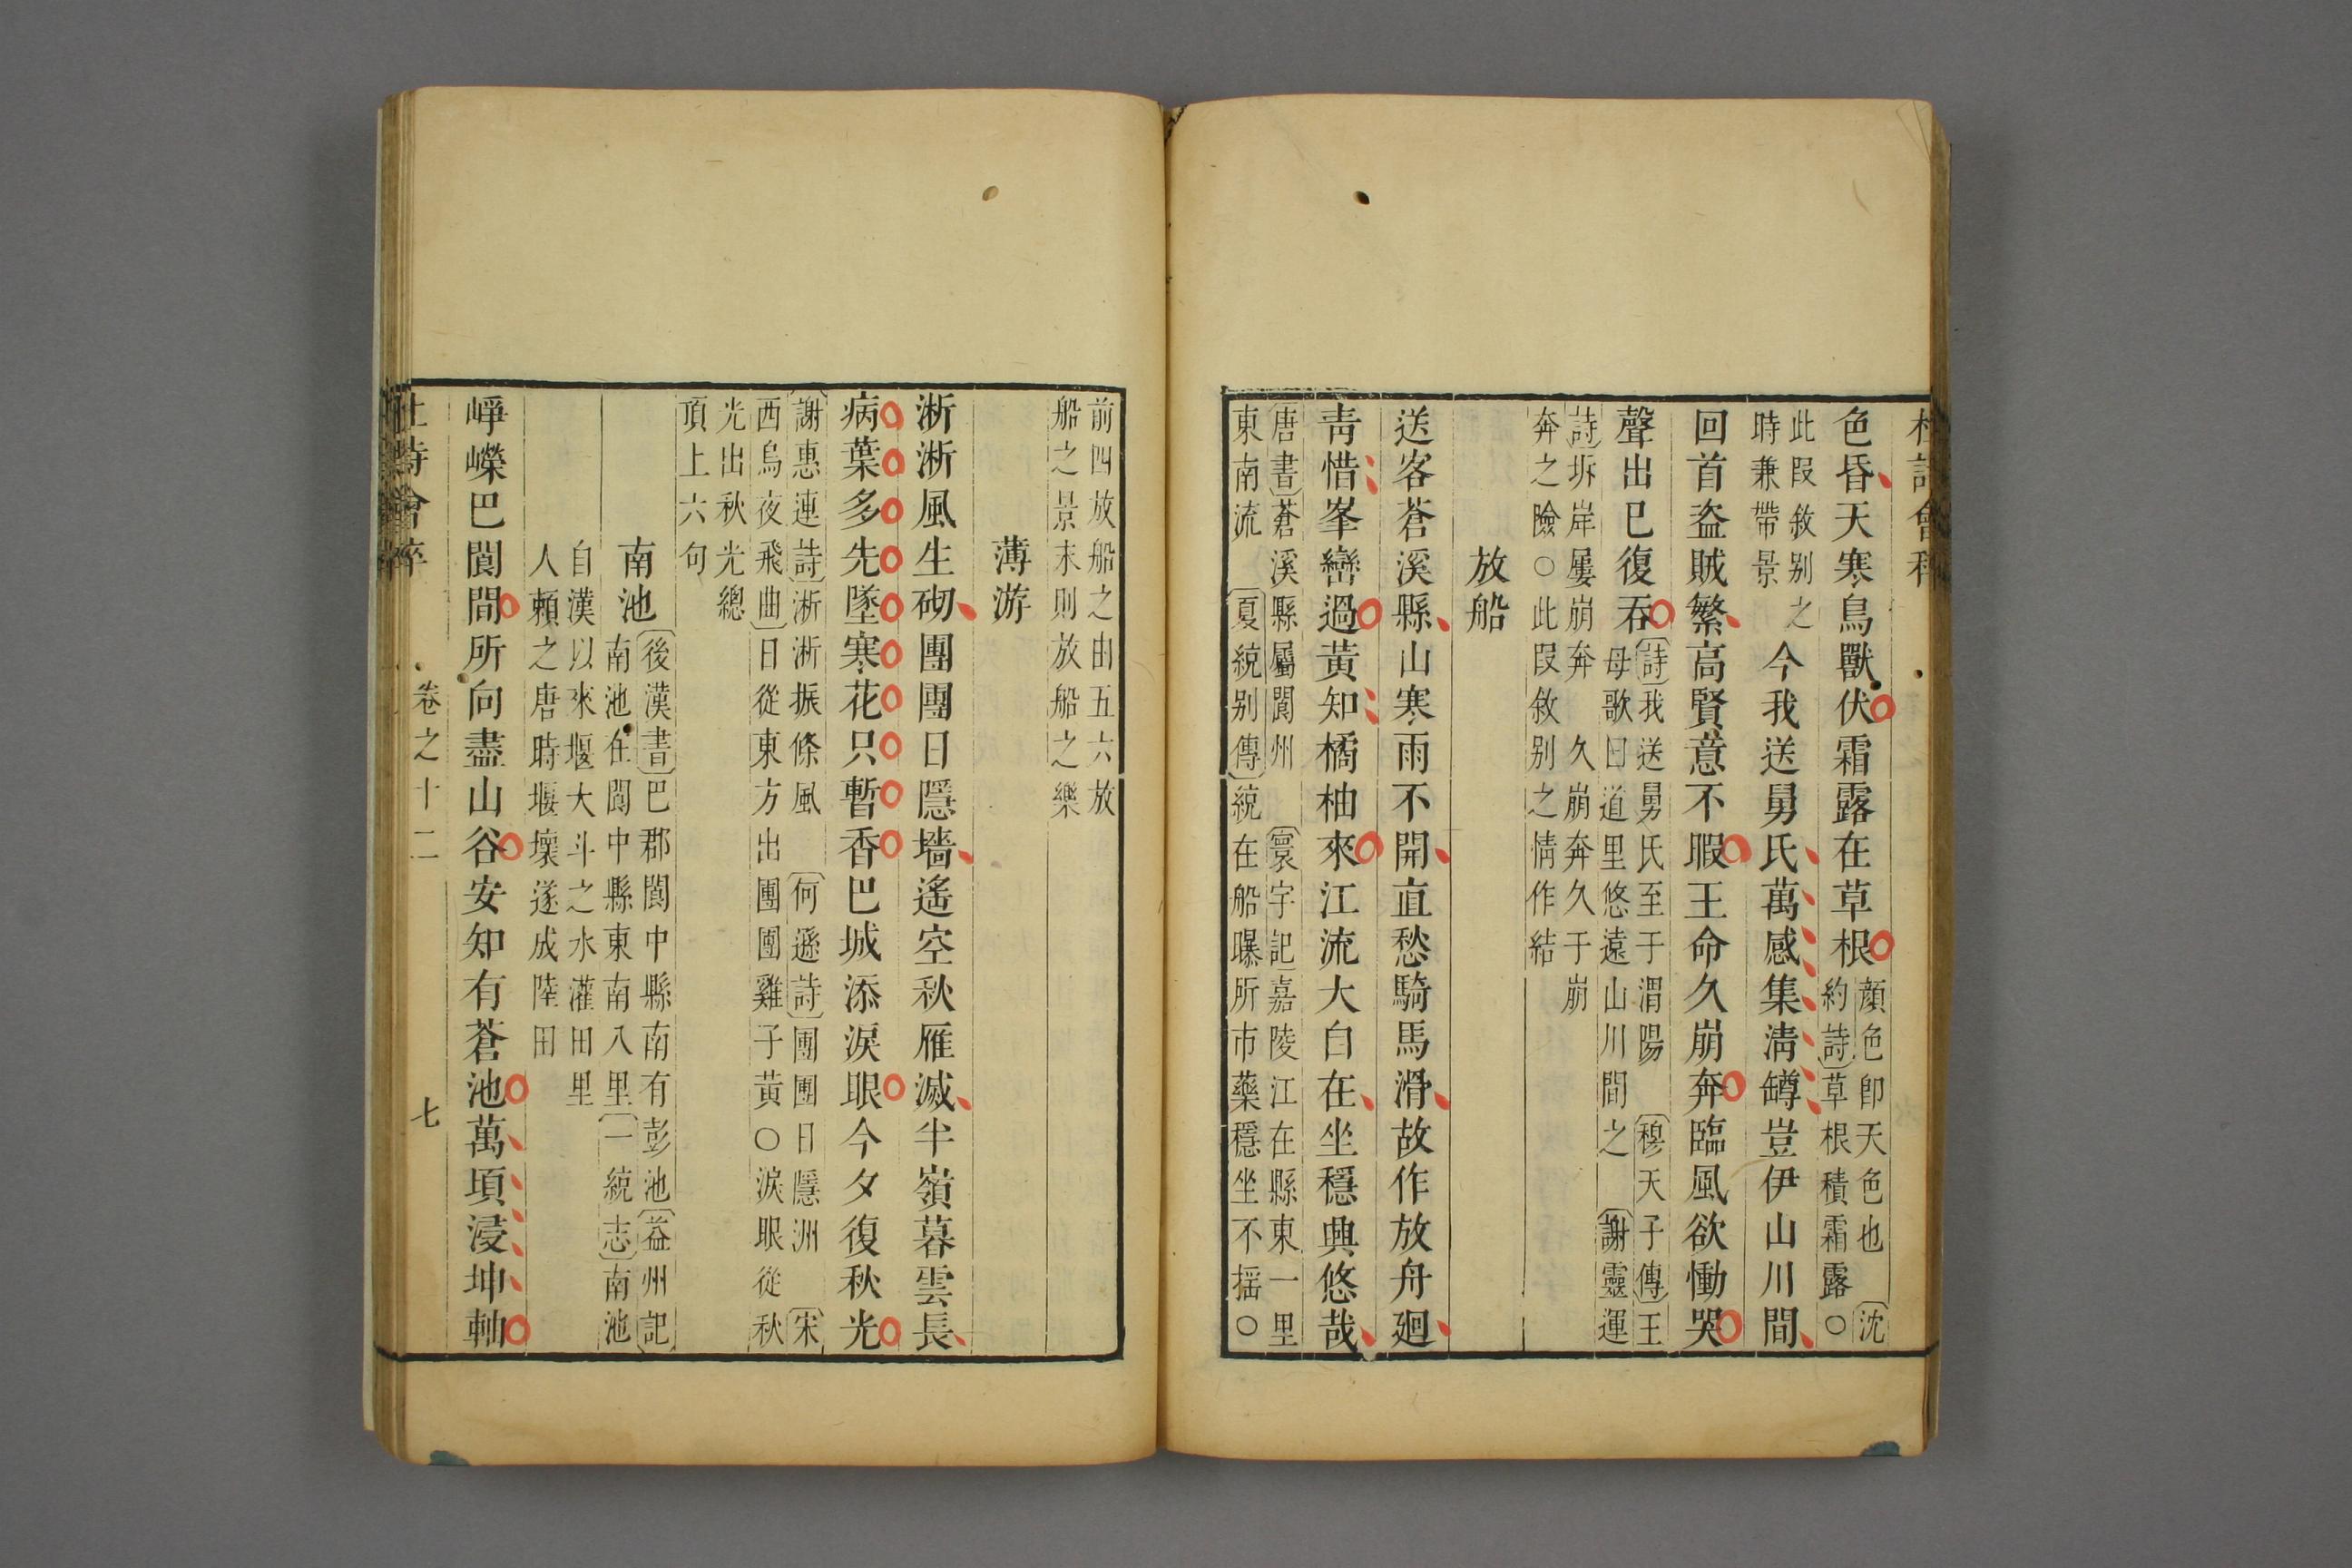 杜詩會稡
色昏天寒鳥獸伏霜露在草根
顔色卽天色也〔沈
約詩〕草根積霜露○
此段敘别之
時兼帶景
今我送舅氏萬感集淸罇豈伊山川間
回首盗賊繁高賢意不暇王命久崩奔臨風欲慟哭
聲出已復吞
〔詩〕我送舅氏至于渭陽〔穆天子傳〕王
母歌曰道里悠遠山川間之〔謝靈運
詩〕圻岸屢崩奔久崩奔久于崩
奔之險○此段敘别之情作結
放船
送客蒼溪縣山寒雨不開直愁騎馬滑故作放舟廻
靑惜峯巒過黃知橘柚來江流大自在坐穩興悠哉
〔唐書〕蒼溪縣屬閬州〔寰宇記〕嘉陵江在縣東一里
東南流〔夏統别傳〕統在船曝所市藥穩坐不揺○
前四放船之由五六放
船之景末則放船之樂
薄游
淅淅風生砌團團日隱墻遙空秋雁滅半嶺暮雲長
病葉多先墜寒花只暫香巴城添淚眼今夕復秋光
〔謝惠連詩〕淅淅振條風〔何遜詩〕團團日隱洲〔宋
西烏夜飛曲〕日從東方出團團雞子黃○淚眼從秋
光出秋光總
頂上六句
南池
〔後漢書〕巴郡閬中縣南有彭池〔益州記〕
南池在閬中縣東南八里〔一統志〕南池
自漢以來堰大斗之水灌田里
人賴之唐時堰壞遂成陸田
崢嶸巴閬間所向盡山谷安知有蒼池萬頃浸坤軸
杜詩會稡 卷之十二 七